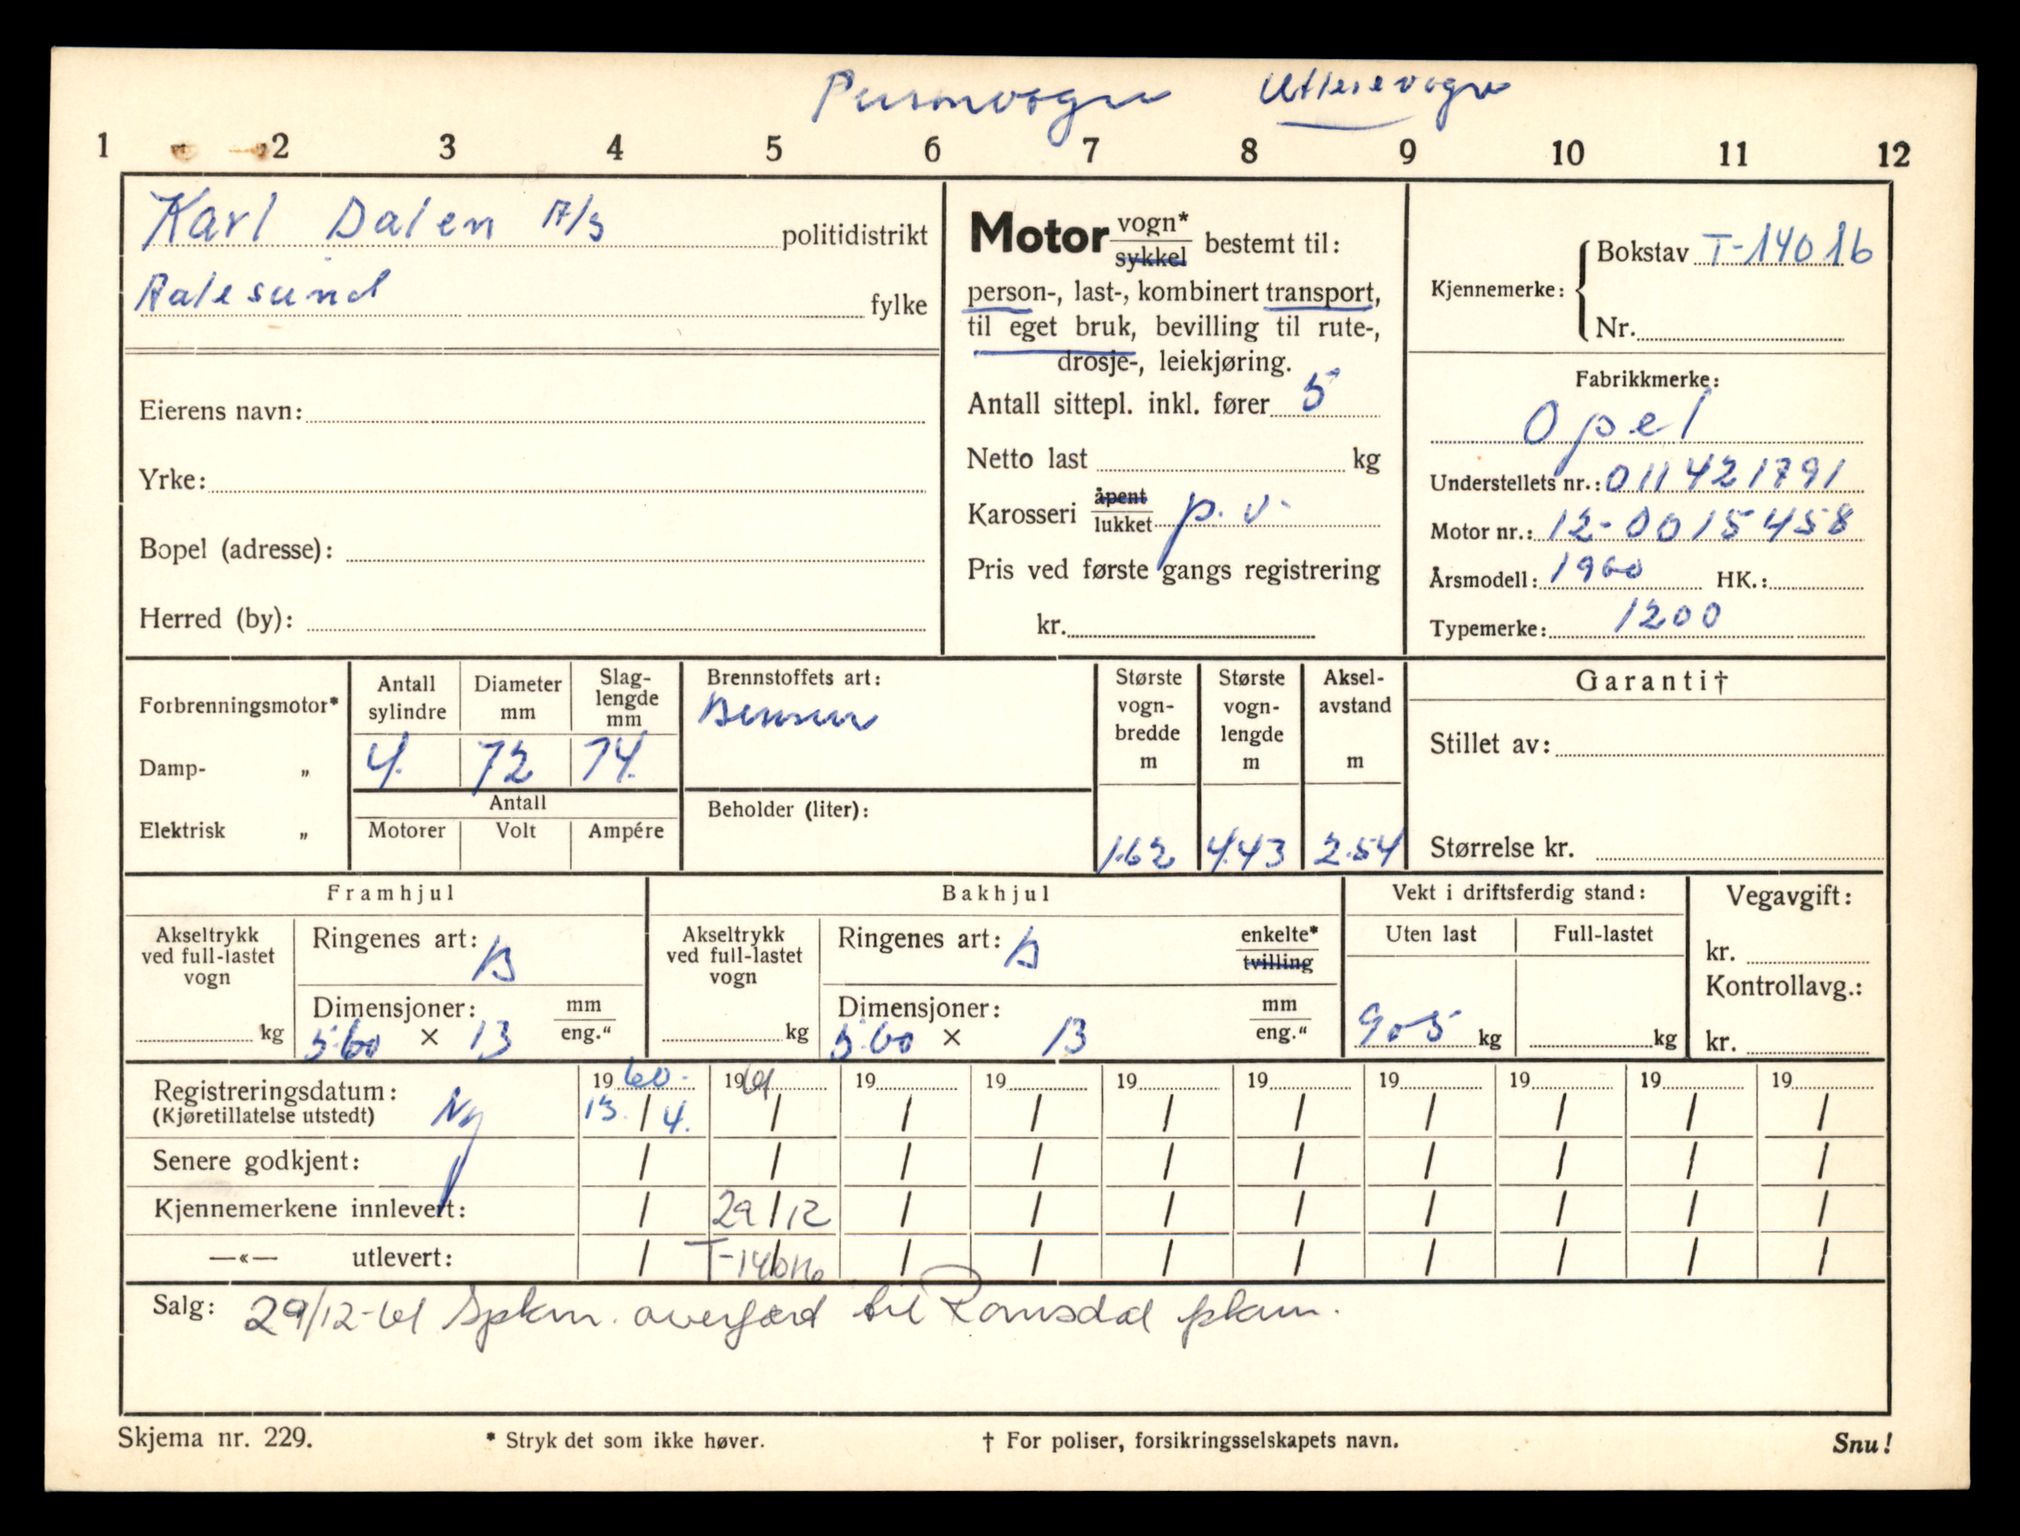 Personvogn Utleievogn
1 2 3 4 5 6 7 8 9 10 11 12
Karl Dalen A/S politidistrikt
Aalesund fylke
Eierens navn:
Yrke:
Bopel (adresse):
Herred (by):
Motor vogn* sykkel bestemt til:
person-, last-, kombinert transport,
til eget bruk, bevilling til rute-,
drosje-, leiekjøring.
Antall sittepl. inkl. fører 5
Netto last kg
Karosseri åpent lukket p.v.
Pris ved første gangs registrering
kr.
Kjennemerke: Bokstav T-14016
Nr.
Fabrikkmerke:
Opel
Understellets nr.: 011421791
Motor nr.: 12-0015458
Årsmodell: 1960 HK.:
Typemerke: 1200
Forbrenningsmotor*
Damp- „
Elektrisk „
Antall sylindre
4.
Diameter mm
72
Slag-lengde mm
74.
Antall
Motorer Volt Ampére
Brennstoffets art:
Bensin
Beholder (liter):
Største vogn-bredde m
1.62
Største vogn-lengde m
4.43
Aksel-avstand m
2.54
Garanti†
Stillet av:
Størrelse kr.
Framhjul
Akseltrykk ved full-lastet vogn
kg
Ringenes art: B
Dimensjoner: mm eng."
5.60 × 13
Bakhjul
Akseltrykk ved full-lastet vogn
kg
Ringenes art: B enkelte* tvilling
Dimensjoner: mm eng."
5.60 × 13
Vekt i driftsferdig stand:
Uten last Full-lastet
905 kg kg
Vegavgift:
kr.
Kontrollavg.:
kr.
Registreringsdatum: Ny 1960. 1961 19 19 19 19 19 19 19 19
(Kjøretillatelse utstedt) 13. / 4. / / / / / / / / /
Senere godkjent: / / / / / / / / / /
Kjennemerkene innlevert: / 29/12 / / / / / / / /
—«— utlevert: / T-14016 / / / / / / / /
Salg: 29/12-61 Spkm. overført til Romsdal pkam.
Skjema nr. 229. * Stryk det som ikke høver. † For poliser, forsikringsselskapets navn. Snu!